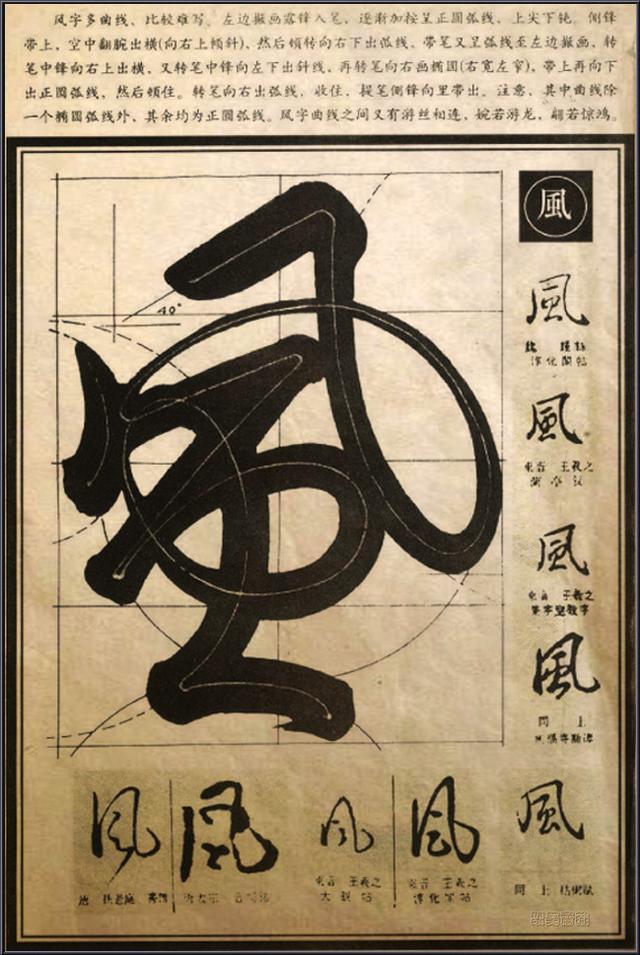 风字多曲线、比较难写。左边撇画露锋入笔，逐渐加按呈正圆弧线，上尖下钝。侧锋
带上，空中翻腕出横(向右上倾斜)，然后顿转向右下出弧线，带笔又呈弧线至左边撇画，转
笔中锋向右上出横，又转笔中锋向左下出斜线，再转笔向右画椭圆(右宽左窄)，带上再向下
出正圆弧线，然后顿住。转笔向右出弧线，收住，提笔侧锋向里带出。注意，其中曲线除
一个椭圆弧线外，其余均为正圆弧线。风字曲线之间又有游丝相连，婉若游龙，翩若惊鸿。
風
風
40°
風
淳化阁帖
風
东晋 王羲之
風
东晋 王羲之
風
同上
風
同上
風
東晋 王羲之
淳化阁帖
風
東晋 王羲之
風
風